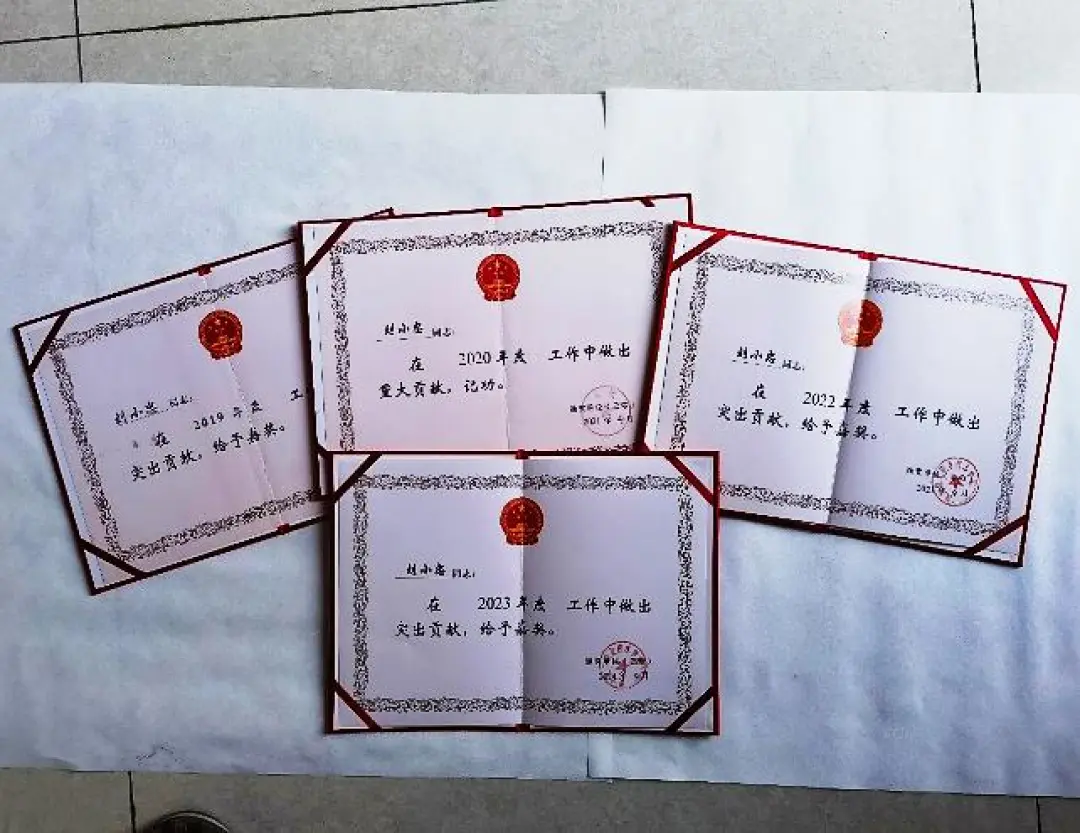 赵小忠 同志:
在 2019 年度 工
突出贡献，给予嘉奖。
赵小忠 同志:
在 2020 年度 工作中做出
重大贡献，记功。
赵小忠 同志:
在 2022 年度 工作中做出
突出贡献，给予嘉奖。
赵小忠 同志:
在 2023 年度 工作中做出
突出贡献，给予嘉奖。